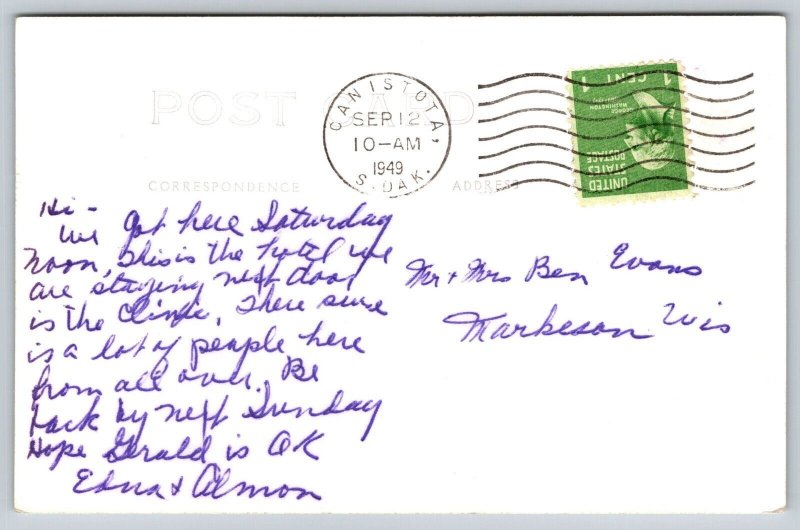 POST CARD
CANISTOTA,
SEP 12
10-AM
1949
S. DAK.
1 CENT 1
GEORGE
WASHINGTON
UNITED
STATES
POSTAGE
CORRESPONDENCE
ADDRESS
Hi -
We got here Saturday
noon, This is the hotel we
are staying next door
is the Clinic, There sure
is a lot of people here
from all over. Be
back by next Sunday
Hope Gerald is OK
Edna & Almon
Mr + Mrs Ben Evans
Markeson Wis